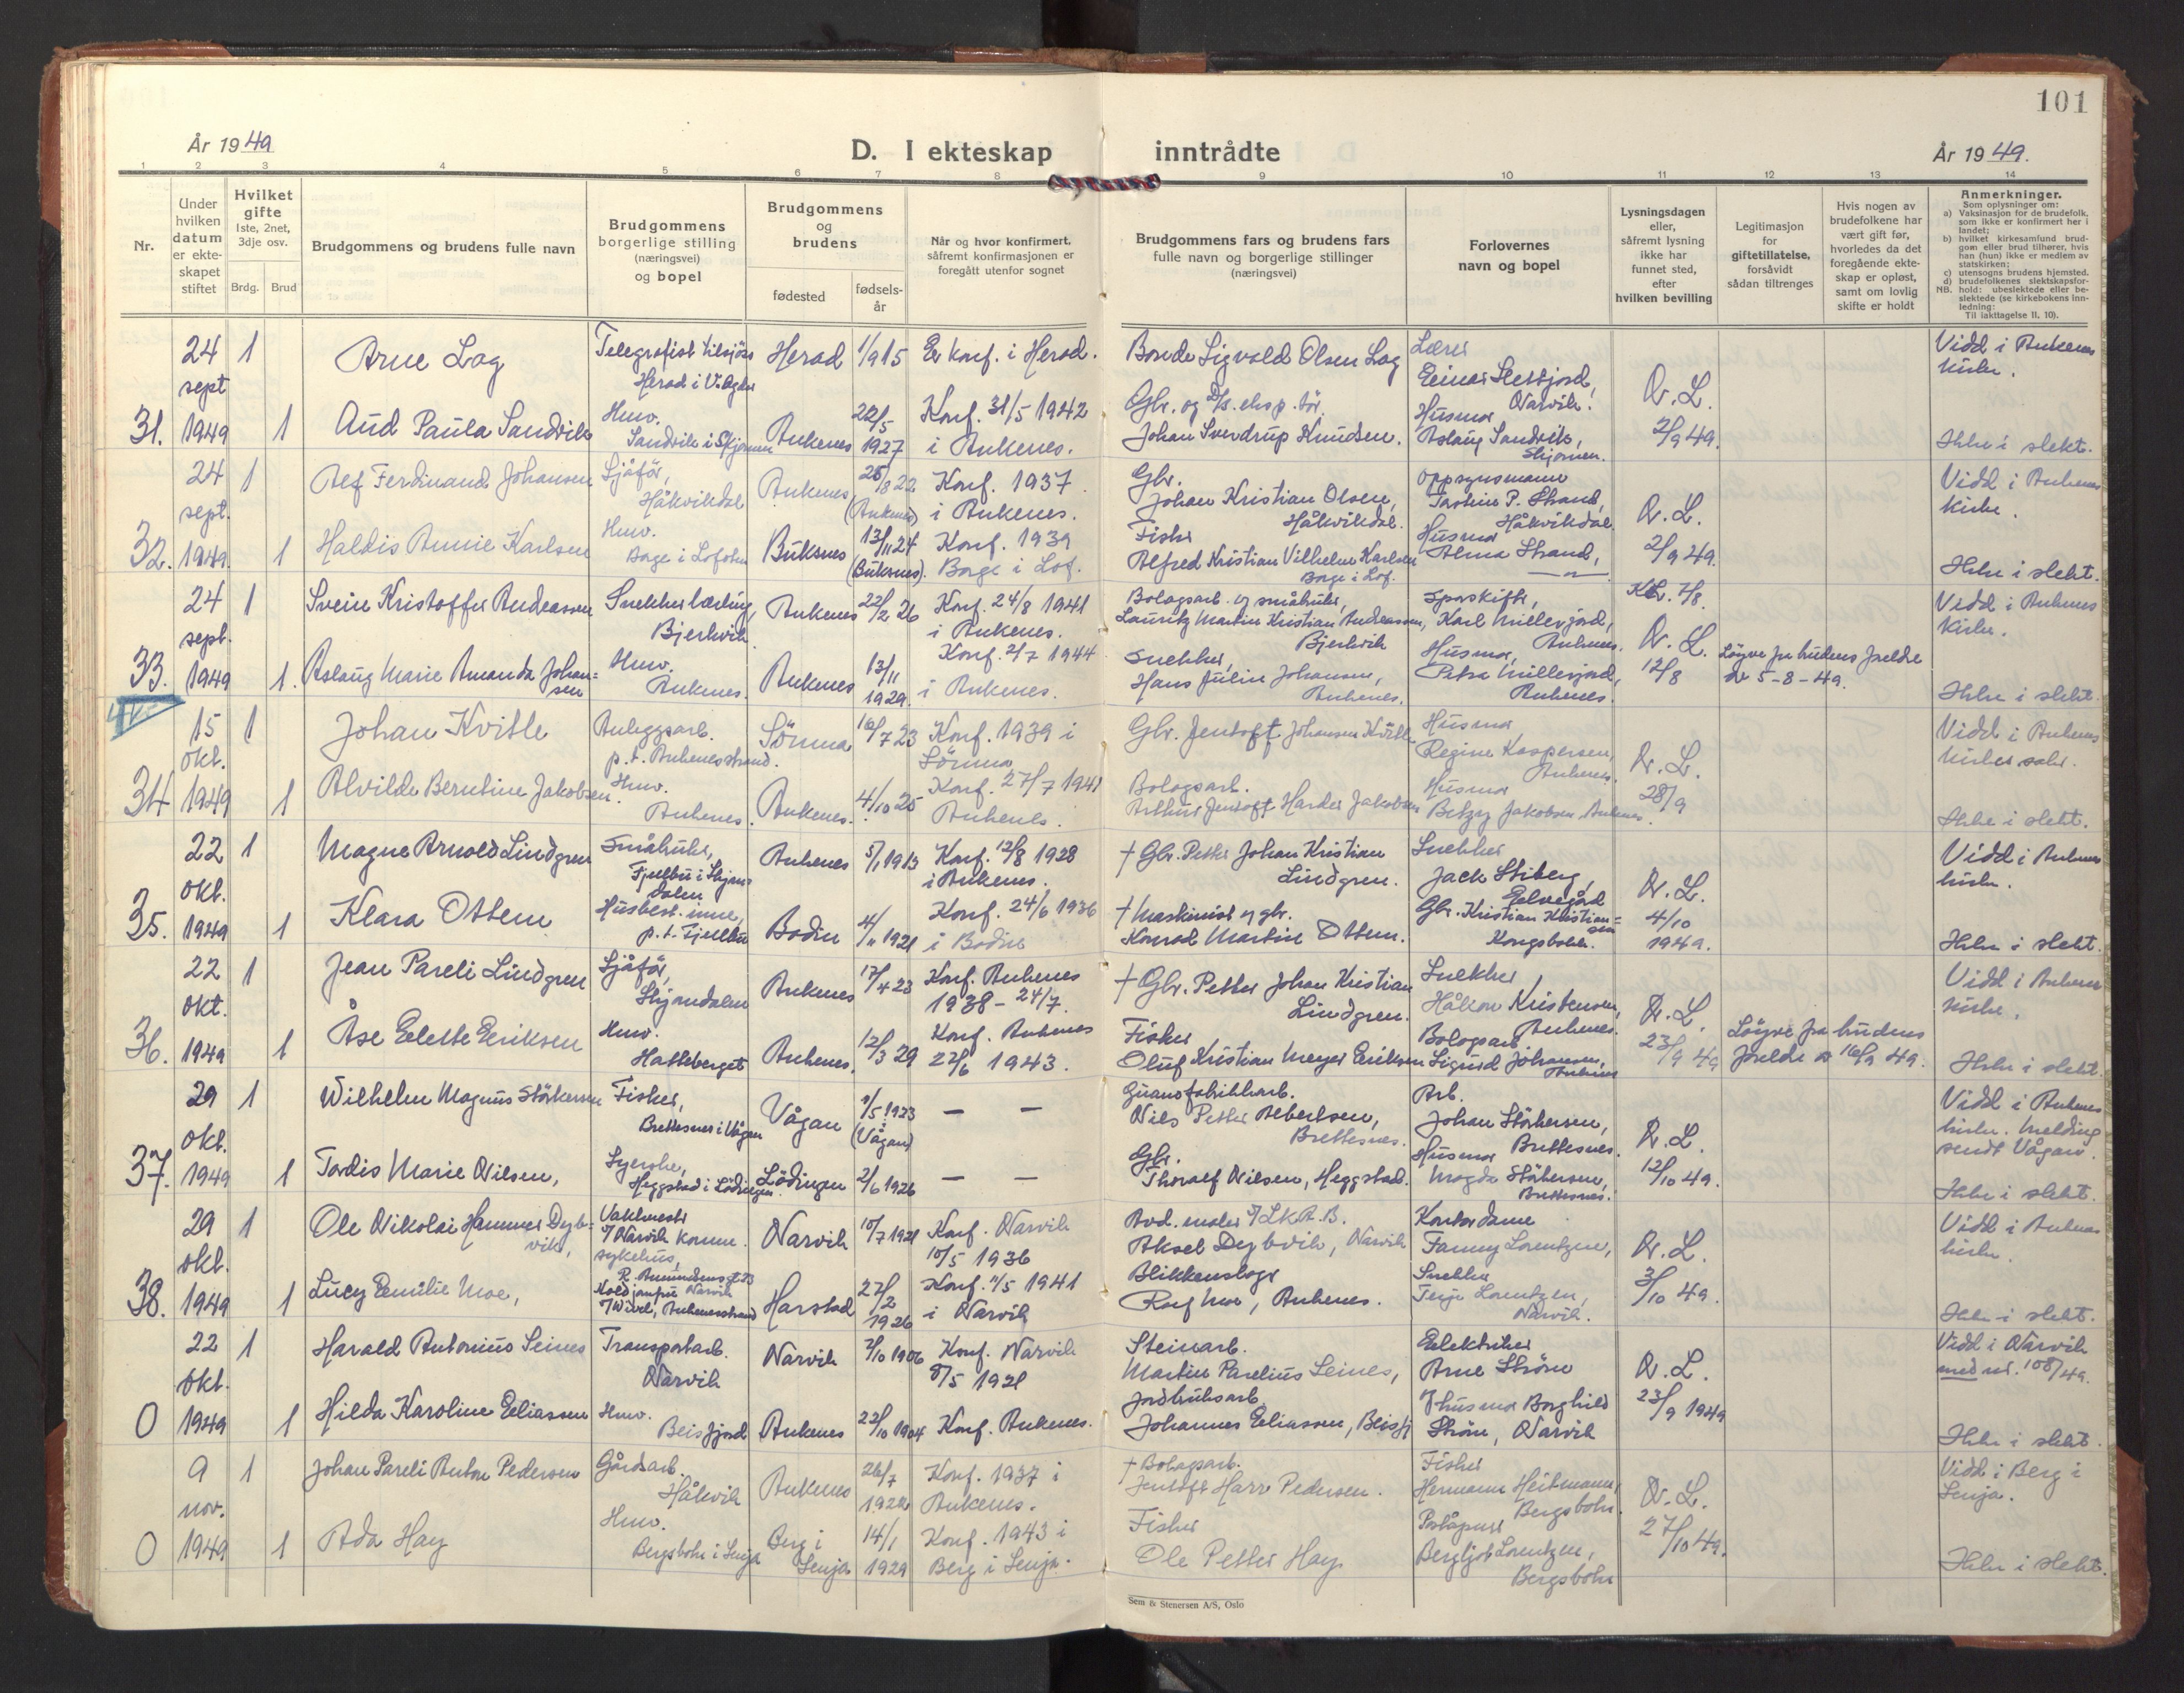 101
År 1949
D. I ekteskap inntrådte
År 1949.
1 2 3 4 5 6 7 8 9 10 11 12 13 14
Nr.
Under hvilken datum er ekteskapet stiftet
Hvilket gifte 1ste, 2net, 3dje osv.
Brdg. Brud
Brudgommens og brudens fulle navn
Brudgommens borgerlige stilling (næringsvei) og bopel
Brudgommens og brudens
fødested
fødsels-år
Når og hvor konfirmert, såfremt konfirmasjonen er foregått utenfor sognet
Brudgommens fars og brudens fars fulle navn og borgerlige stillinger (næringsvei)
Forlovernes navn og bopel
Lysningsdagen eller, såfremt lysning ikke har funnet sted, efter hvilken bevilling
Legitimasjon for giftetillatelse, forsåvidt sådan tiltrenges
Hvis nogen av brudefolkene har vært gift før, hvorledes da det foregående ekteskap er opløst, samt om lovlig skifte er holdt
Anmerkninger.
Som oplysninger om:
a) Vaksinasjon for de brudefolk, som ikke er konfirmert her i landet;
b) hvilket kirkesamfund brudgom eller brud tilhører, hvis han (hun) ikke er medlem av statskirken;
c) utensogns brudens hjemsted.
d) brudefolkenes slektskapsforhold: ubeslektede eller beslektede (se kirkebokens innledning:
NB. Til iakttagelse II, 10).
31. 24 sept 1949
1 Arne Log
Telegrafist
Herad i V. Agder
Herad 1/9 15 Er konf. i Herad.
Bonde Sigvald Olsen Log
Lærer
Einar Slettjord, Narvik.
Vidd i Ankenes kirke.
1 Aud Paula Sandvik
Hmv.
Sandvik i Skjomen
Ankenes 22/5 1927
Konf. 31/5 1942 i Ankenes.
Gbr. og
Johan Sverdrup Knudsen.
Husmor Aslaug Sandvik, Skjomen.
N.L. 2/9 49.
Ikke i slekt.
32. 24 sept. 1949.
1 Alf Ferdinand Johansen
Sjåför, Håkvikdal
Ankenes 25/8 22 (Ankenes)
Konf. 1937 i Ankenes.
Gbr. Johan Kristian Olsen, Håkvikdal.
Oppsynsmann P. Strand, Håkvikdal
Vidd i Ankenes kirke.
1 Haldis Annie Karlsen
Hmv. Borge i Lofoten
Buksnes 13/11 24 (Buksnes).
Konf. 1939 Borge i Lof.
Fisker Alfred Kristian Vilhelm Karlsen Borge i Lof.
Husmor Alma Strand, — " —
N.L. 2/9 49.
Ikke i slekt.
33. 24 sept. 1949
1 Svein Kristoffer Andreassen
Snekkerlærling, Bjerkvik
Ankenes 22/2 26
Konf. 24/8 1941 i Ankenes.
Bolagsarb. og småbruker, Lauritz Martin Kristian Andreassen, Bjerkvik
Karl Millerjord, Ankenes.
Vidd i Ankenes kirke.
1. Aslaug Marie Amanda Johansen
Hmv. Ankenes.
Ankenes 13/11 1929.
Konf. 2/7 1944 i Ankenes.
Snekker, Hans Julin Johansen, Ankenes.
Husmor, Petra Millerjord, Ankenes.
N.L. 12/8
Löyve fra brudens foreldre av 5-8-49.
Ikke i slekt.
34 15 okt. 1949
1 Johan Kvitle
Anleggsarb. p.t. Ankenesstrand.
Sörum 16/7 23
Konf. 1939 i
Gbr. Jentoft Johansen
Husmor Regine Kaspersen, Ankenes.
Vidd i Ankenes
1 Alvilde Berntine Jakobsen.
Hmv. Ankenes.
Ankenes. 4/10 25
Konf. 27/7 1941 Ankenes.
Bolagsarb. Arthur Jentoft Harder Jakobsen
Husmor Betzy Jakobsen Ankenes.
N.L. 28/9
Ikke i slekt.
35. 22 okt. 1949
1 Magne Arnold Lindgren
Småbruker, Fjellbu i Skjomdalen
Ankenes 5/1 1913
Konf. 12/8 1928 i Ankenes.
† Gbr. Petter Johan Kristian Lindgren.
Snekker Jack Stiberg, Elvegård
Vidd i Ankenes kirke.
1 Klara Ottem
Husbest. inne, p.t. Fjellbu
Bodin 4/11 1921
Konf. 24/6 1936 i Bodin
† Maskinist og gbr. Konrad Martin Ottem.
Gbr. Kristian Kristiansen Kongsbakk.
N.L. 4/10 1949.
Ikke i slekt.
36. 22 okt. 1949
1 Jean Pareli Lindgren
Sjåför, Skjomdalen
Ankenes 17/4 23
Konf. Ankenes 1938 - 24/7.
† Gbr. Petter Johan Kristian Lindgren.
Snekker, Håkon Kristensen, Ankenes.
Vidd i Ankenes kirke.
1 Åse Elette Eriksen
Hmv. Hatteberget
Ankenes. 12/3 29
Konf. Ankenes 27/6 1943.
Fisker Oluf Kristian Meyer Eriksen
Bolagsarb. Sigurd Johansen, Ankenes
N.L. 23/9 49
Löyve fra brudens foreldre av 16/9 49.
Ikke i slekt.
37. 29 okt. 1949
1 Wilhelm Magnus Störkersen
Fisker, Brettesnes i Vågan
Vågan 1/5 1923 (Vågan)
— —
Guanofabrikkarb. Nils Petter Albertsen, Brettesnes.
Arb. Johan Störkersen, Brettesnes.
Vidd i Ankenes kirke. Melding sendt Vågan.
1 Tordis Marie Nilsen,
Syerske, Heggstad i Lödingen
Lödingen 2/6 1926
— —
Gbr. Thoralf Nilsen, Heggstad.
Husmor Magda Störkersen, Brettesnes.
N.L. 12/10 49.
Ikke i slekt.
38. 29 okt. 1949
1 Ole Nikolai Hammer Dybvik,
Vaktmester v/Narvik komm. sykehus,
Narvik 10/7 1921
Konf. Narvik 10/5 1936
Avd. maler v/LKAB. Aksel Dybvik, Narvik
Kontordame Fanny Lorentzen,
Vidd i Ankenes kirke.
1 Lucy Emilie Moe,
Ankenesstrand
Harstad 27/2 1926
Konf. 11/5 1941 i Narvik
Blikkenslager Rolf Moe, Ankenes.
Snekker Terje Lorentzen, Narvik.
N.L. 3/10 49.
Ikke i slekt.
0 22 okt. 1949
1 Harald Antonius Seines
Transportarb. Narvik
Narvik 2/10 1906
Konf. Narvik 8/5 1921
Steinarb. Martin Parelius Seines,
Elektriker Arne Ström
Vidd i Narvik med nr. 108/49.
1 Hilda Karoline Eliassen
Hmv. Beisfjord
Ankenes 22/10 1904
Konf. Ankenes.
Jordbruksarb. Johannes Eliassen, Beisfj
Husmor Borghild Ström, Narvik
N.L. 23/9 1949
Ikke i slekt.
0 9 nov. 1949
1 Johan Pareli Anton Pedersen
Gårdsarb. Håkvik
Ankenes 26/7 1922
Konf. 1937 i Ankenes.
† Bolagsarb. Jentoft Harr Pedersen.
Fisker Hermann Heitmann, Bergsbotn.
Vidd i Berg i Senja.
1 Ada Hay
Hmv. Bergsbotn i Senja
Berg i Senja 14/1 1929
Konf. 1943 i Berg i Senja.
Fisker Ole Petter Hay
Bergljot Lorentzen, Bergsbotn
N.L. 27/10 49.
Ikke i slekt.
Sem & Stenersen A/S, Oslo